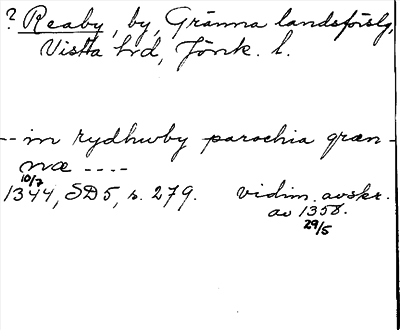 ? Reaby, by, Gränna landsförslg,
Vista hrd, Jönk. l.
-- in rydhwby parochia græn-
næ ----
10/7
1344, SD5, s. 279. vidim. avskr.
av 1358.
29/5